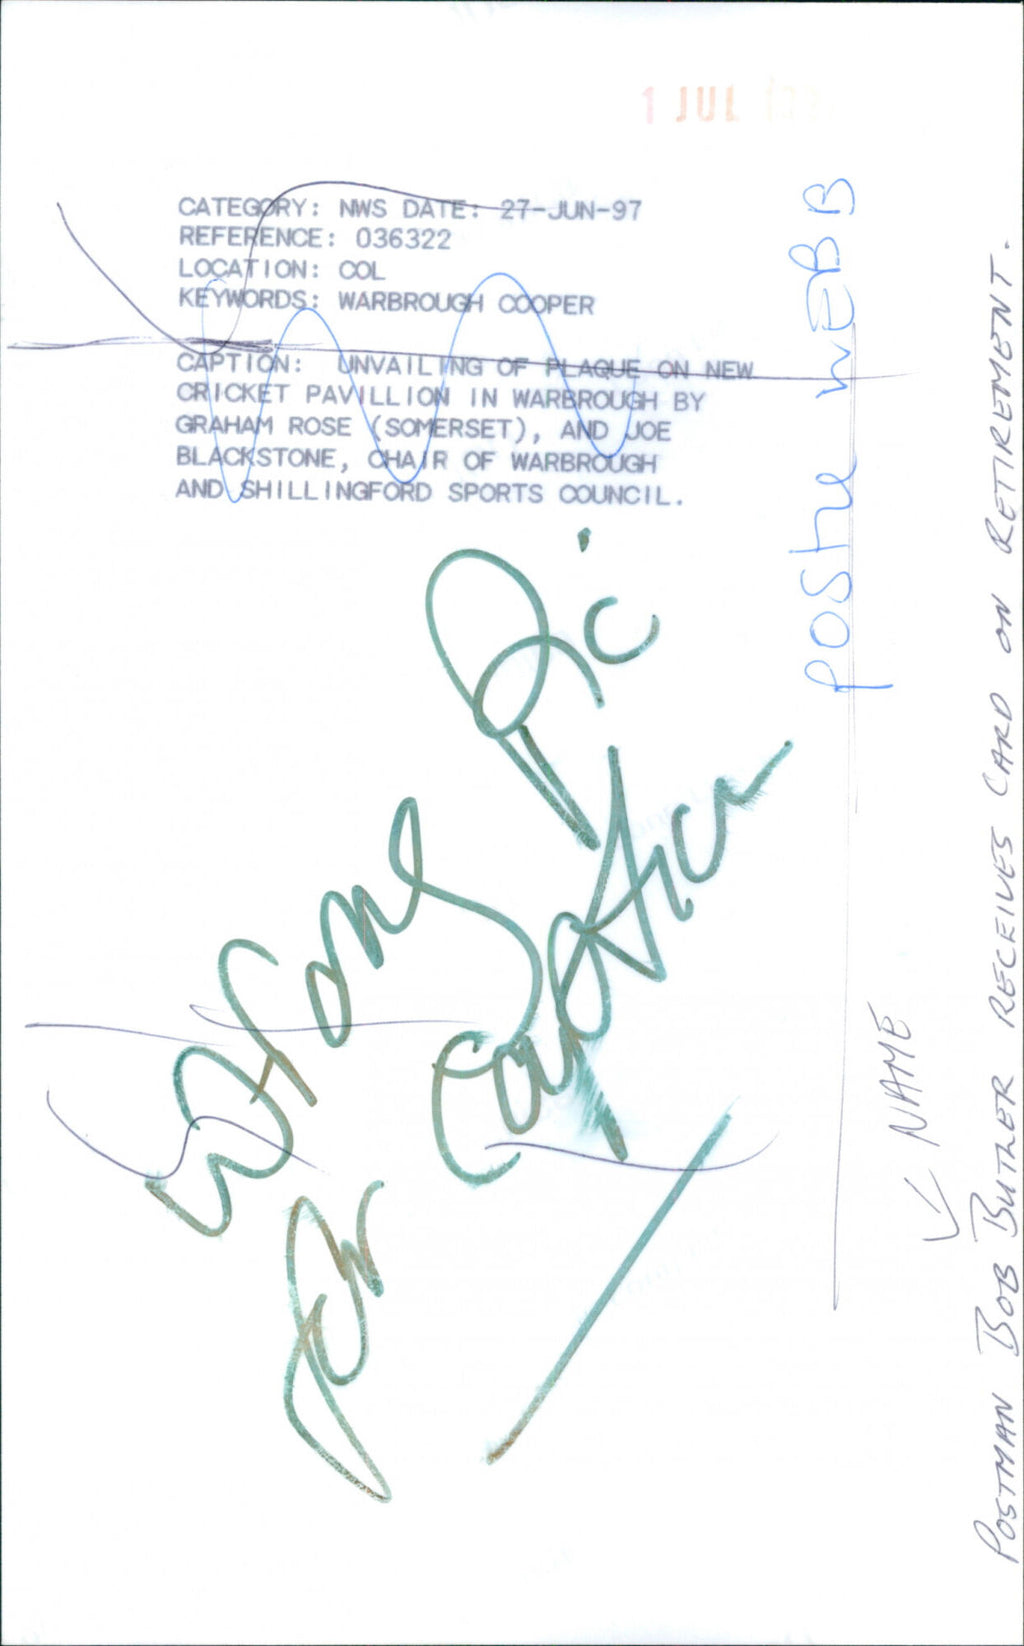 1 JUL
CATEGORY: NWS DATE: 27-JUN-97
REFERENCE: 036322
LOCATION: COL
KEYWORDS: WARBROUGH COOPER
CAPTION: UNVAILING OF PLAQUE ON NEW
CRICKET PAVILLION IN WARBROUGH BY
GRAHAM ROSE (SOMERSET), AND JOE
BLACKSTONE, CHAIR OF WARBROUGH
AND SHILLINGFORD SPORTS COUNCIL.
WEBB
Wrong Pic
for Caption
NAME
POSTMAN BOB BUTLER RECEIVES CARD ON RETIREMENT.